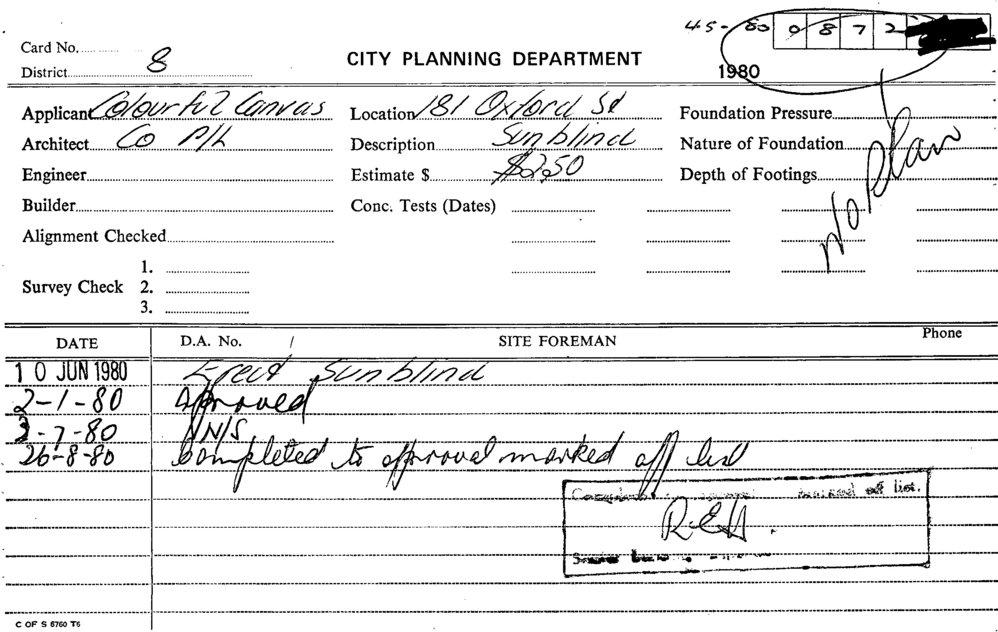 45-80 0872
Card No.
District 8
CITY PLANNING DEPARTMENT
1980
Applicant Colourful Canvas
Location 181 Oxford St
Foundation Pressure
Architect Co P/L
Description Sunblind
Nature of Foundation
Engineer
Estimate $ $250
Depth of Footings
No Plan
Builder
Conc. Tests (Dates)
Alignment Checked
1.
Survey Check 2.
3.
DATE D.A. No. SITE FOREMAN Phone
10 JUN 1980 Erect Sunblind
2-1-80 Approved
2-7-80 N/S
26-8-80 Completed to approval marked off list
marked off list.
R.E.H.
C OF S 6760 T6